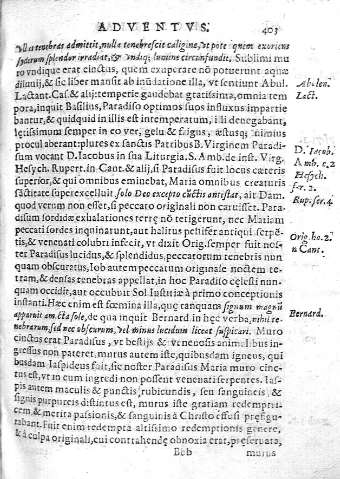 ADVENTVS. 403
vllas tenebras admittit, nulla tenebrescit caligine, vt pote quem exoriens
syderum splendor irradiat, & vndiq; lumine circunfundit. Sublimi mu
ro vndique erat cinctus, quem exuperare nō potuerunt aquæ
diluuij, & sic liber mansit ab inūdatione illa, vt sentiunt Abul.
Abulen.
Lactant. Cæs. & alij: temperie gaudebat gratissima, omnia tem
Lact.
pora, inquit Basilius, Paradiso optimos suos influxus impartie
bantur, & quidquid in illis est intemperatum, illi denegabant,
lętissimum semper in eo ver, gelu & frigus, æstusq; nimius
procul aberant: plures ex sanctis Patribus B. Virginem Paradi-
sum vocant D. Iacobus in sua Liturgia. S. Amb. de inst. Virg.
D. Iacob.
Amb. c. 2
Hesych. Rupert. in Cant. & alij, si Paradisus fuit locus cæteris
Hesych.
superior, & qui omnibus eminebat, Maria omnibus creaturis
ser. 2.
sāctitate superexcelluit, solo Deo excepto cūctis antistat, ait Dam.
Rup. ser. 4
quod verum non esset, si peccato originali non caruisset. Para-
disum sordidæ exhalationes terrę nō tetigerunt, nec Mariam
peccati sordes inquinarunt, aut halitus pestifer antiqui serpē-
tis, & venenati colubri infecit, vt dixit Orig. semper fuit nos-
Orig. ho. 2.
ter Paradisus lucidus, & splendidus, peccatorum tenebris nun
in Cant.
quam obscuratus, Iob autem peccatum originale noctem te-
tram, & densas tenebras appellat, in hoc Paradiso cęlesti nun-
quam occidit, aut occubut Sol Iustitiæ à primo conceptionis
instanti. Hæc enim est fœmina illa, quę tanquam signum magnū
apparuit amicta sole, de qua inquit Bernard. in hęc verba, nihil te-
Bernard.
nebrarum, sed nec obscurum, vel minus lucidum liceat suspicari. Muro
cinctus erat Paradisus, vt bestijs & venenosis animalibus in-
gressus non pateret, murus autem iste, quibusdam igneus, qui
busdam Iaspideus fuit, sic noster Paradisus Maria muro cinc-
tus est, vt in eum ingredi non possent venenati serpentes. Ias-
pis autem maculis & punctis rubicundis, seu sanguineis, &
signis purpureis distinctus est, murus iste gratiam redempti-
cem & merita passionis, & sanguinis à Christo effusi pręfigu-
rabant. Fuit enim redempta altissimo redemptionis genere,
& à culpa originali, cui contrahendę obnoxia erat, pręseruata,
Bbb murus